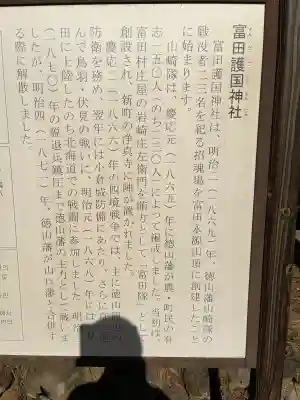 富田護国神社
富田護国神社は、明治二(一八六九)年、徳山藩山崎隊の
戦没者二三名を祀る招魂場を富田永源山頂に創建したこと
に始まります。
山崎隊は、慶応元(一八六五)年に徳山藩が農・町民の有
志一五〇人(のち二三〇人)によって編成しました。当初は、
富田村庄屋の岩崎庄左衛門を総
創設され、新町の浄真寺に陣が置かれました。
慶応二(一八六六)年の四境戦争では、主に徳山
防衛を務め、翌年には小倉城防備にあたり、さらに
んで鳥羽・伏見の戦いに、明治元(一八六八)年には
田に上陸したのち北海道での戦闘に参加しました。明治
(一八七〇)年の脱退兵鎮圧まで徳山藩の主力として戦いま
したが、明治四(一八七一)年、徳山藩が山口藩と合併す
る際に解散しました。